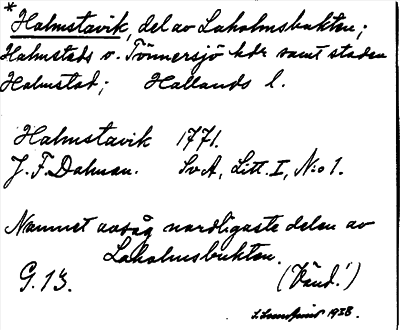 * Halmstavik, del av Laholmsbukten;
Halmstads o. Tönnersjö hdr samt staden
Halmstad; Hallands l.
Halmstavik 1771.
J. F. Dalman. SvA, Litt. I, N:o 1.
Namnet avsåg nordligaste delen av
Laholmsbukten.
G. 13. (Vänd!)
1938.